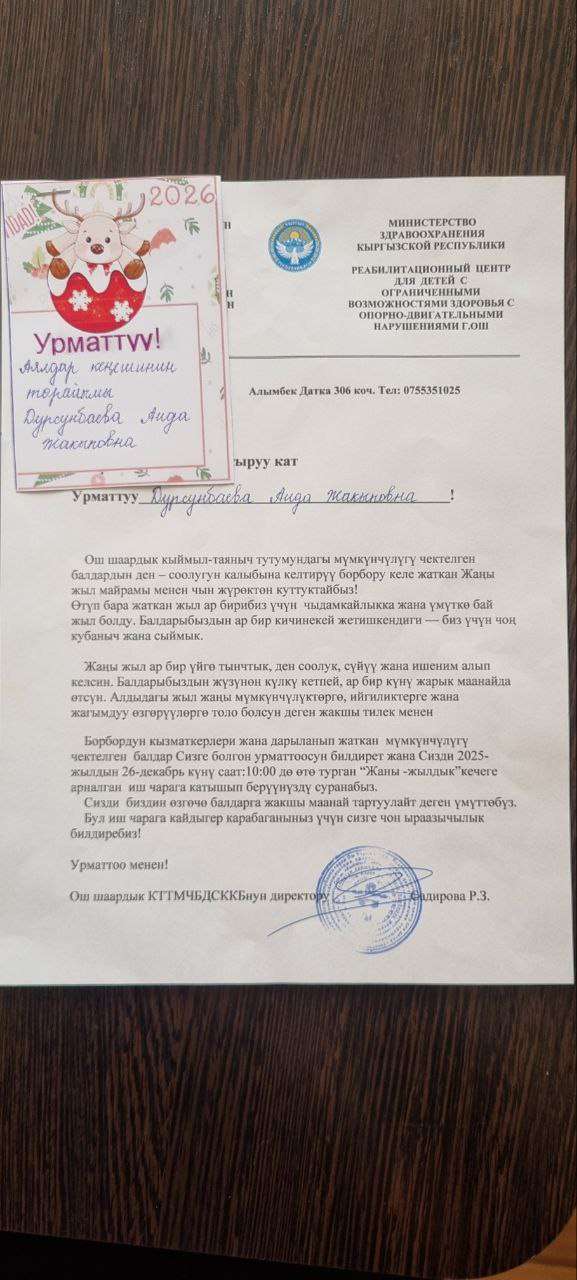 2026
Урматтуу!
Аялдар кеңешинин
төрайымы
Дурсунбаева Аида
Жакыповна
МИНИСТЕРСТВО
ЗДРАВООХРАНЕНИЯ
КЫРГЫЗСКОЙ РЕСПУБЛИКИ
РЕАБИЛИТАЦИОННЫЙ ЦЕНТР
ДЛЯ ДЕТЕЙ С
ОГРАНИЧЕННЫМИ
ВОЗМОЖНОСТЯМИ ЗДОРОВЬЯ С
ОПОРНО-ДВИГАТЕЛЬНЫМИ
НАРУШЕНИЯМИ Г.ОШ
Алымбек Датка 306 коч. Тел: 0755351025
тыруу кат
Урматтуу Дурсунбаева Аида Жакыповна !
Ош шаардык кыймыл-таяныч тутумундагы мүмкүнчүлүгү чектелген
балдардын ден – соолугун калыбына келтирүү борбору келе жаткан Жаңы
жыл майрамы менен чын жүрөктөн куттуктайбыз!
Өтүп бара жаткан жыл ар бирибиз үчүн чыдамкайлыкка жана үмүткө бай
жыл болду. Балдарыбыздын ар бир кичинекей жетишкендиги — биз үчүн чоң
кубаныч жана сыймык.
Жаңы жыл ар бир үйгө тынчтык, ден соолук, сүйүү жана ишеним алып
келсин. Балдарыбыздын жүзүнөн күлкү кетпей, ар бир күнү жарык маанайда
өтсүн. Алдыдагы жыл жаңы мүмкүнчүлүктөргө, ийгиликтерге жана
жагымдуу өзгөрүүлөргө толо болсун деген жакшы тилек менен
Борбордун кызматкерлери жана дарыланып жаткан мүмкүнчүлүгү
чектелген балдар Сизге болгон урматтоосун билдирет жана Сизди 2025-
жылдын 26-декабрь күнү саат:10:00 дө өтө турган “Жаны -жылдык”кечеге
арналган иш чарага катышып берүүнүздү суранабыз.
Сизди биздин өзгөчө балдарга жакшы маанай тартуулайт деген үмүттөбүз.
Бул иш чарага кайдыгер карабаганыныз үчүн сизге чон ыраазычылык
билдиребиз!
Урматтоо менен!
Ош шаардык КТТМЧБДСККБнун директору Садирова Р.З.